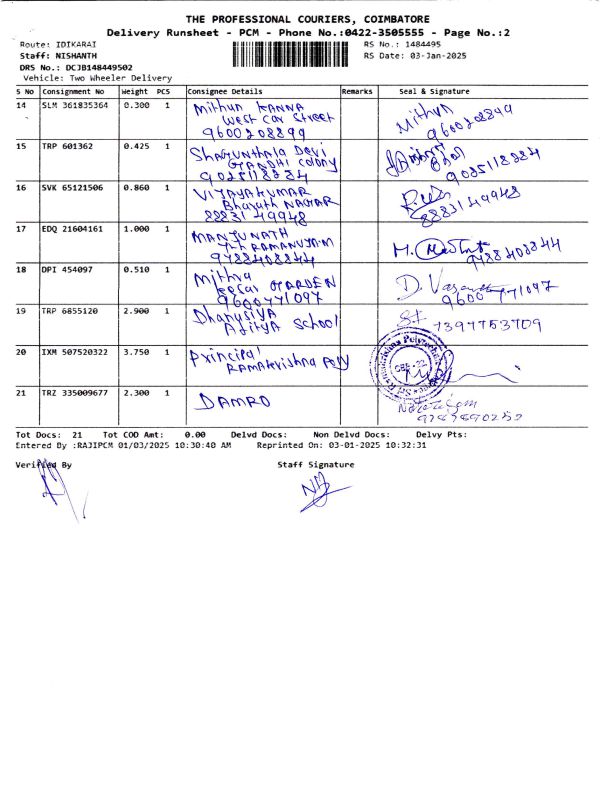 THE PROFESSIONAL COURIERS, COIMBATORE
Delivery Runsheet - PCM - Phone No.:0422-3505555 - Page No.:2
Route: IDIKARAI RS No.: 1484495
Staff: NISHANTH RS Date: 03-Jan-2025
DRS No.: DCJB148449502
Vehicle: Two Wheeler Delivery
S No Consignment No Weight PCS Consignee Details Remarks Seal & Signature
14 SLM 361835364 0.300 1 Mithun KANNA Mithun
West Car Street
9600208899 9600208899
15 TRP 601362 0.425 1 Shagunthala Devi
GANDHI Colony
9025118884 9025118884
16 SVK 65121506 0.860 1 VIJAYAKUMAR
Bharath NAGAR
8883149948 8883149948
17 EDQ 21604161 1.000 1 MANJUNATH M.
RAMANUJAM
9788408844 9788408844
18 DPI 454097 0.510 1 Mithra D.
Kesar GARDEN
9600771097 9600771097
19 TRP 6855120 2.900 1 Dhanusiya
Aditya School 7397753709
20 IXM 507520322 3.750 1 Principal
RAMAKrishna Poly
21 TRZ 335009677 2.300 1 DAMRO
Tot Docs: 21 Tot COD Amt: 0.00 Delvd Docs: Non Delvd Docs: Delvy Pts:
Entered By :RAJIPCM 01/03/2025 10:30:40 AM Reprinted On: 03-01-2025 10:32:31
Verified By Staff Signature